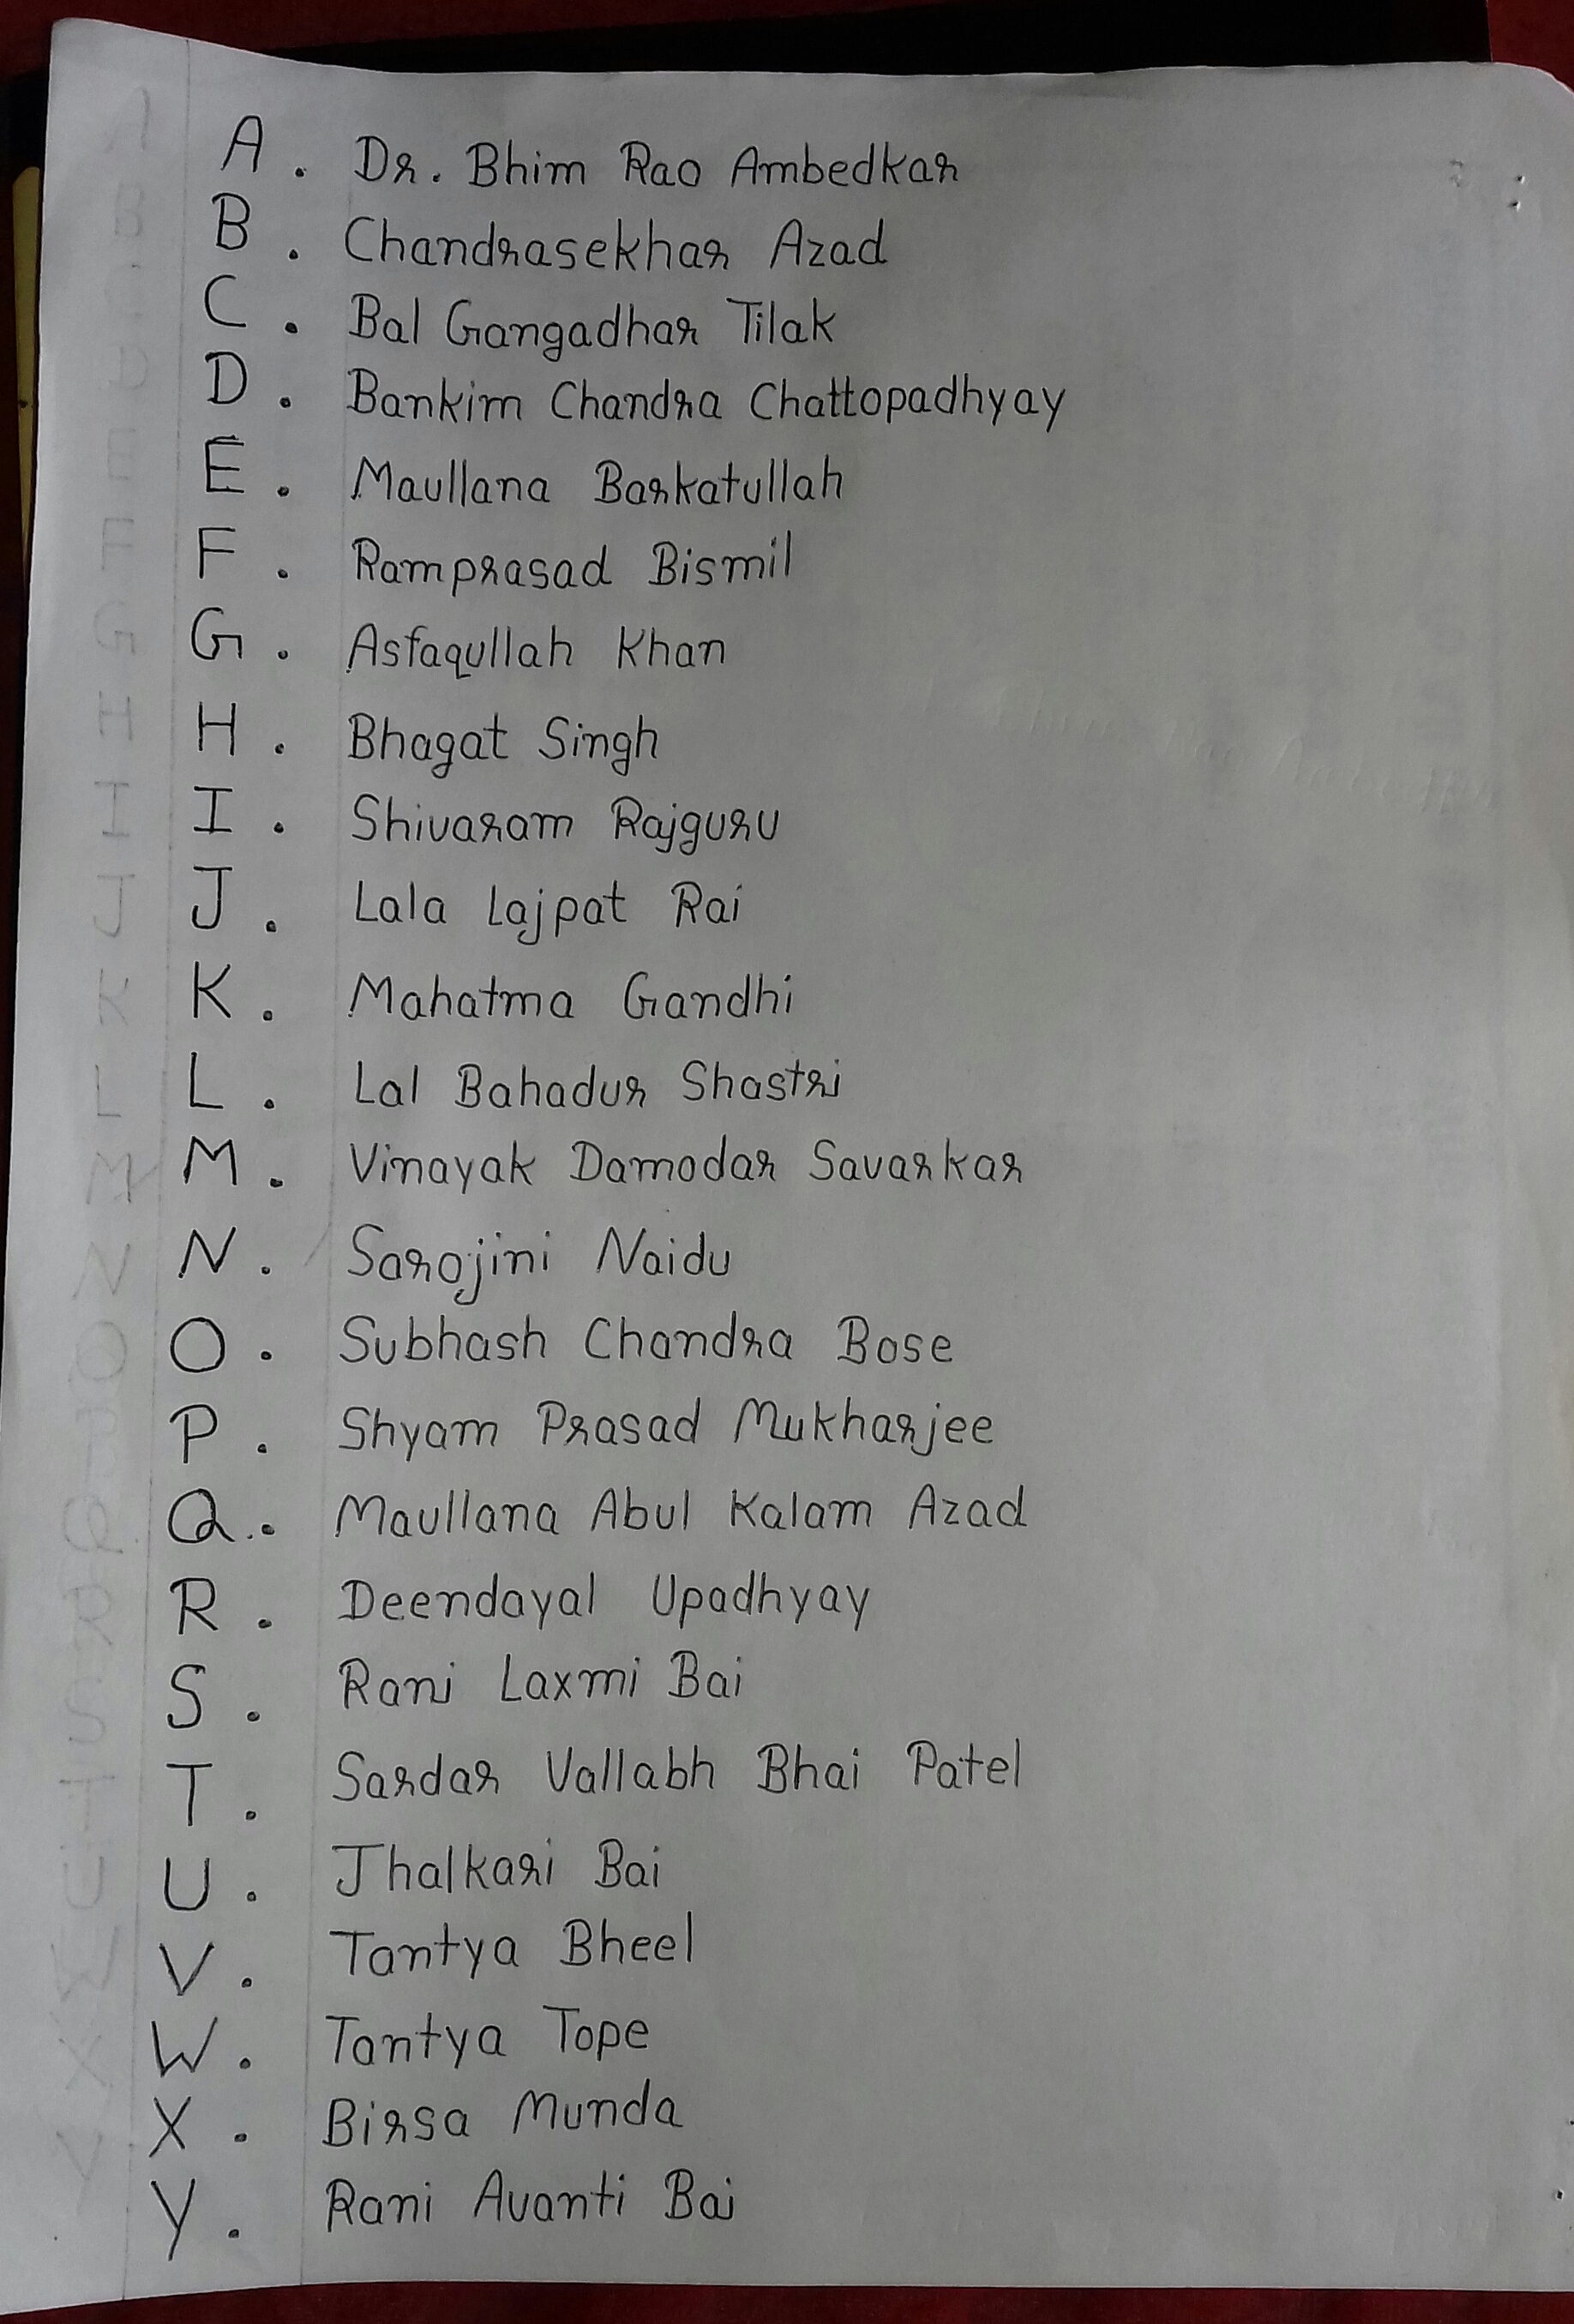 A. Dr. Bhim Rao Ambedkar
B. Chandrasekhar Azad
C. Bal Gangadhar Tilak
D. Bankim Chandra Chattopadhyay
E. Maullana Barkatullah
F. Ramprasad Bismil
G. Asfaqullah Khan
H. Bhagat Singh
I. Shivaram Rajguru
J. Lala Lajpat Rai
K. Mahatma Gandhi
L. Lal Bahadur Shastri
M. Vinayak Damodar Savarkar
N. Sarojini Naidu
O. Subhash Chandra Bose
P. Shyam Prasad Mukharjee
Q. Maullana Abul Kalam Azad
R. Deendayal Upadhyay
S. Rani Laxmi Bai
T. Sardar Vallabh Bhai Patel
U. Jhalkari Bai
V. Tantya Bheel
W. Tantya Tope
X. Birsa Munda
Y. Rani Avanti Bai